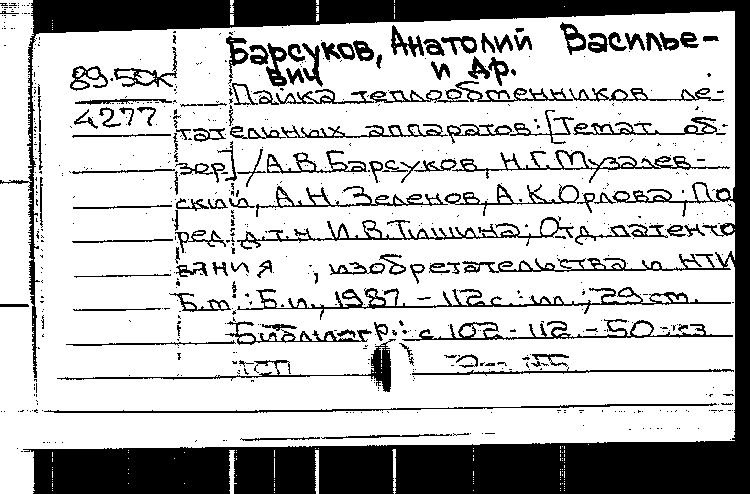 Барсуков, Анатолий Василье-
вич и др.
89.50К
4277
Пайка теплообменников ле-
тательных аппаратов: [Темат. об-
зор] / А.В. Барсуков, Н.Г. Музалев-
ский, А.Н. Зеленов, А.К. Орлова; По
ред. д.т.н. И.В. Тишина; Отд. патенто
вания, изобретательства и НТИ
Б.м.: Б.и., 1987. - 112 с.: ил.; 29 см.
Библиогр.: с. 102-112. - 50 экз
ДСП